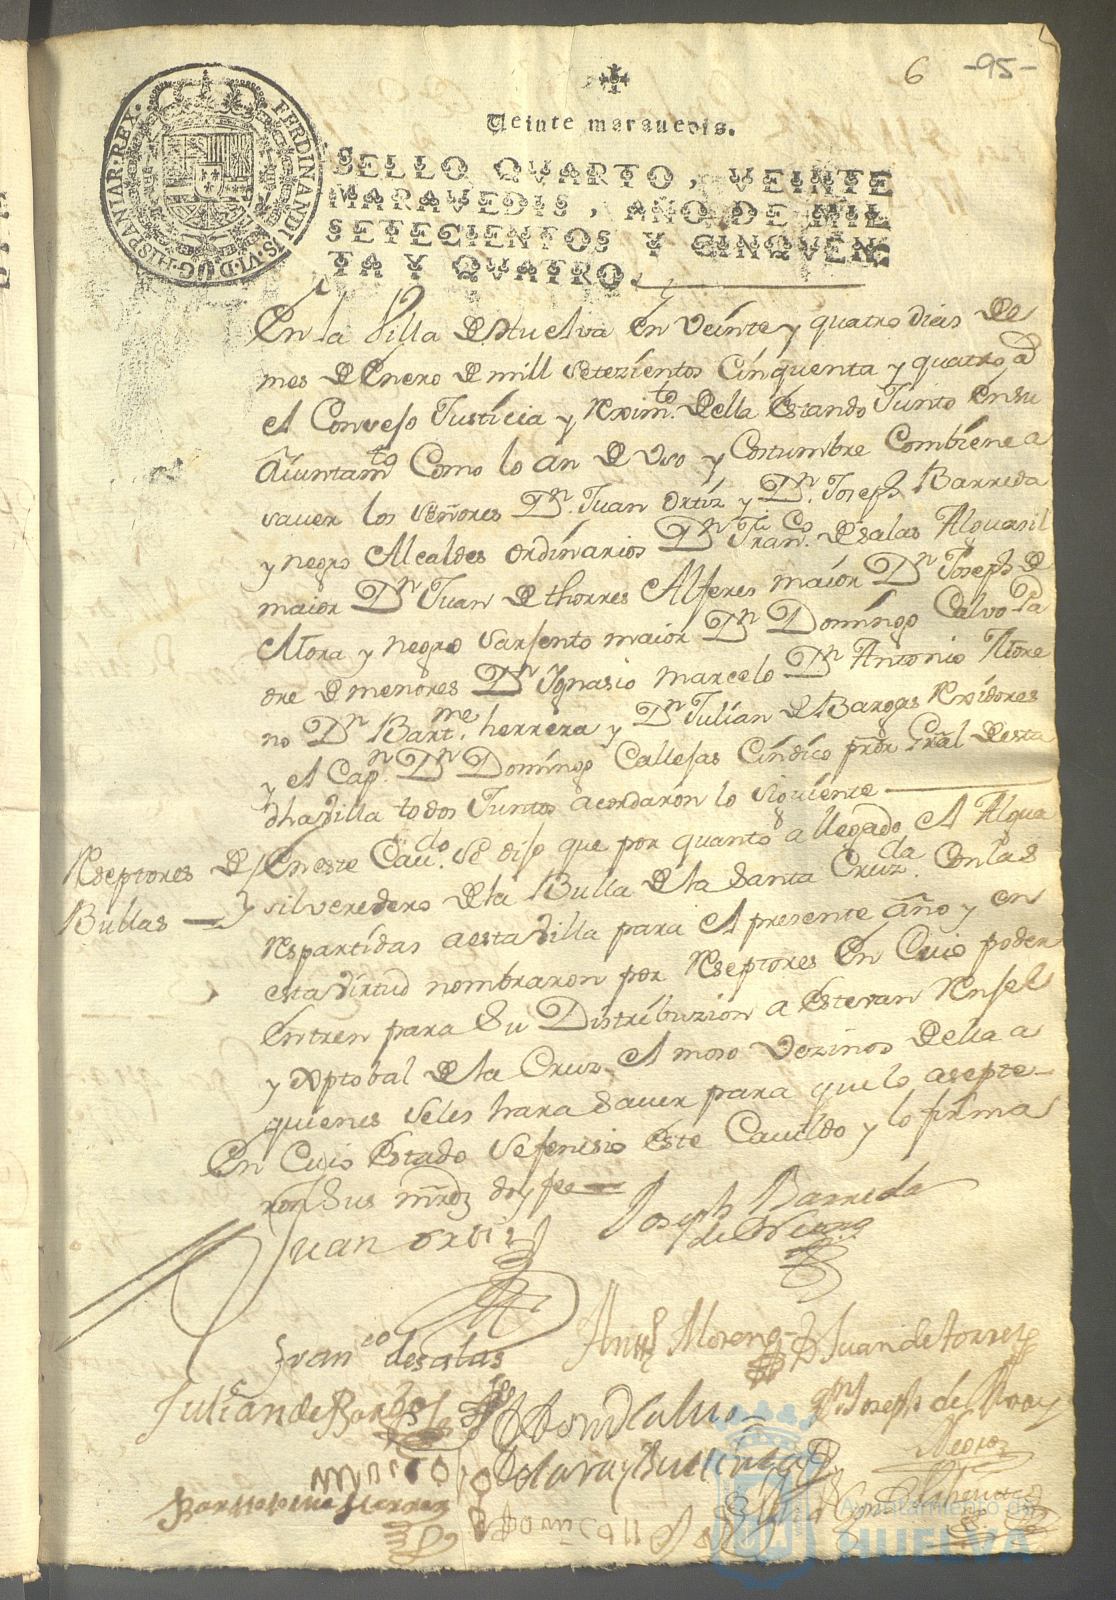 6 -95-
FERDINANDUS·VI·D·G·HISPANIAR·REX·
Veinte maravedis.
SELLO QVARTO, VEINTE
MARAVEDIS, AÑO DE MIL
SETECIENTOS Y CINQVEN-
TA Y QVATRO.
En la Villa de Huelva en veinte y quatro dias de
mes de Enero de mill setezientos Cinquenta y quatro as
el Consejo Justicia y Reximto. della estando Junto en su
Aiuntamto Como lo an de Uso y Costumbre Combiene a
saver los señores Dn. Juan Ortiz y Dn. Joseph Barreda
y negro Alcaldes ordinarios Dn Franco. de salas Alguasil
maior Dn Juan de thorres Alferes maior Dn Joseph de
Mora y negro sarjento maior Dn Domingo Calvo Pa
dre de menores Dn Ygnasio marcelo Dn Antonio More
no Dn Bartme. herrera y Dn Julian de Bargas Rexidores
y el Capn. Dn Domingo Callejas Cindico pror Gral de esta
dha Villa todos Juntos acordaron lo siguiente
Reseptores de
Bullas
En este Cavdo. se dijo que por quanto a llegado el Algua
sil veredero de la Bulla de la Santa Cruzda. con las
Respartidas a esta Villa para el presente año y en
esta Virtud nombraron por Reseptores En Cuio poder
Entren para Su Distribuzion a Estevan Renjel
y Xptobal de la Cruz el moso Vezinos della a
quienes seles hara Saver para que lo asepte
En Cuio Estado se fenisio Este Cavildo y lo firma
ron Sus mrdz doy fee
Juan ortiz
Joseph Barreda
de Negro
Franco de salas
Moreno
Juan de torres
Julian de Bargas
Dn Joseph de Mora y
Negro
Bartholome Herrera
Ayuntamiento de
HUELVA